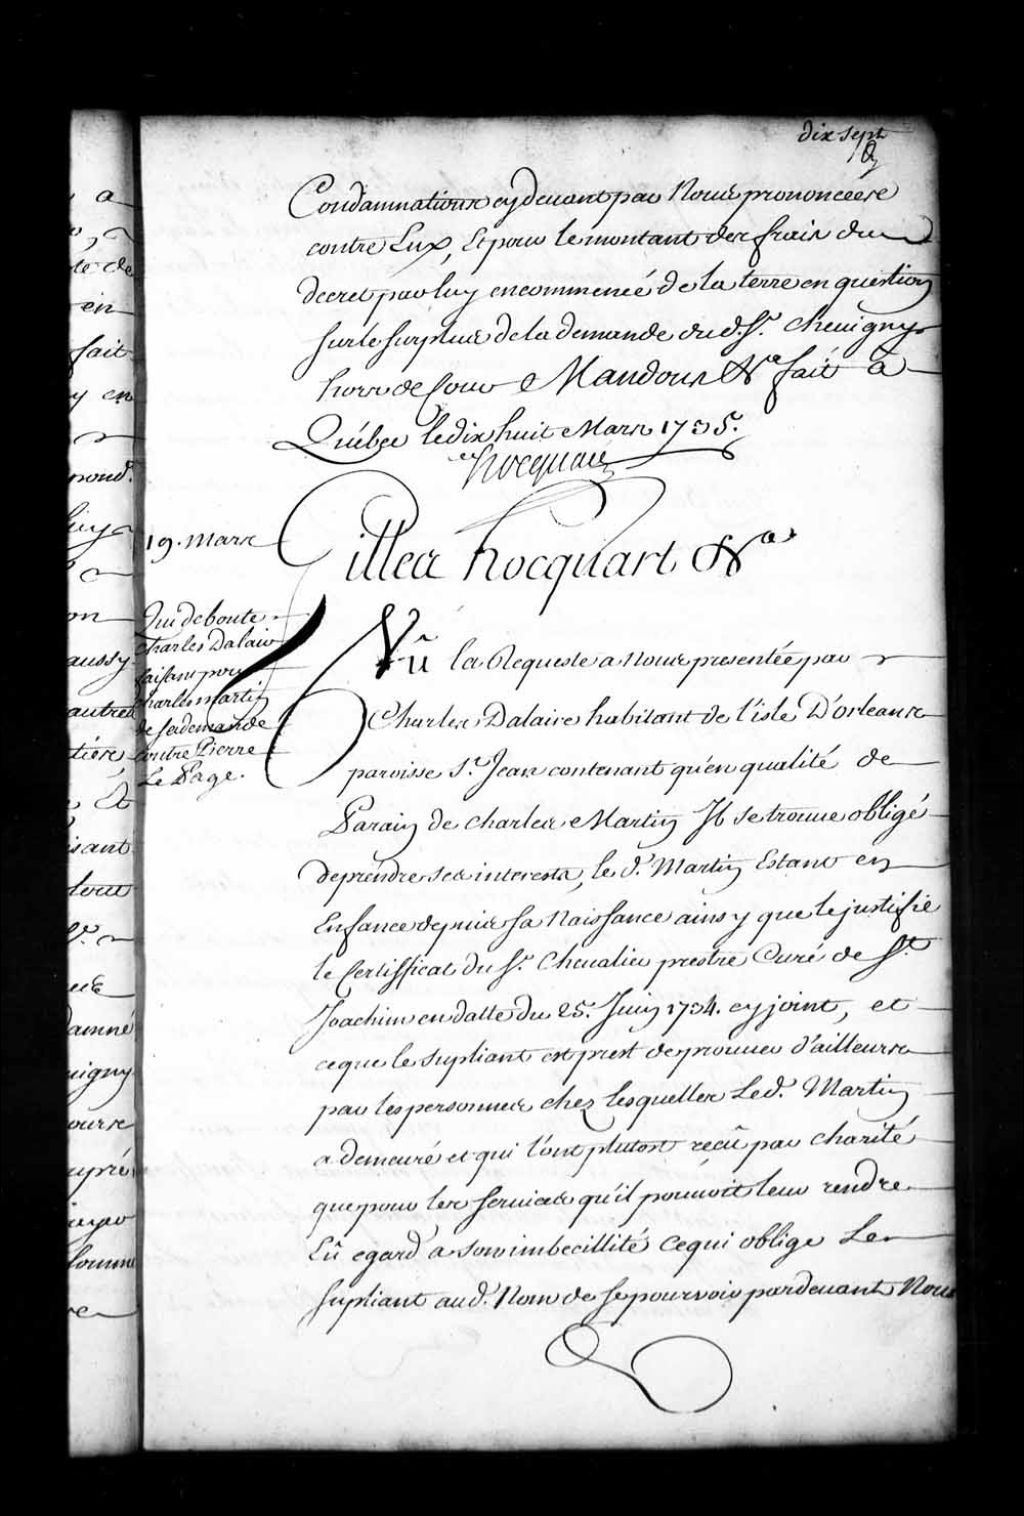 dix sept
Condamnations cy devant par Nous prononcees
contre Lux, Et pour le montant des frais du
decret par luy encommencé de la terre en question
sur le surplus de la demande du d. Sr. Chevigny
hors de Cour Mandons &ca fait à
Québec le dix huit Mars 1735.
Hocquart
19. Mars
Gilles Hocquart &ca
Qui deboute
Charles Dalair
faisant pour
Charles martin
de sa demande
contre Pierre
Le Page.
Vû la Requeste a Nous presentée par
Charles Dalaire habitant de l'isle D'orleans
paroisse St. Jean contenant qu'en qualité de
Parain de charles Martin Il se trouve obligé
de prendre ses interests, le d. Martin Estant en
Enfance depuis sa Naissance ainsy que le justifie
le Certifficat du Sr. Chevalier prestre Curé de St.
Joachim en datte du 25. Juin 1734. cy joint, et
ce que le supliant est prest de prouver d'ailleurs
par les personnes chez lesquelles Le d. Martin
a demeuré et qui l'ont plutost reçû par charité
que pour les services qu'il pouvoit leur rendre
Eû egard a son imbecillité ce qui oblige Le
supliant au d. Nom de se pourvoir pardevant Nous
a
te de
en
fait
y en
pond.
luy
on
aussy
autres
tiere
Et
isant
tout
damné
vigny
ours
upré